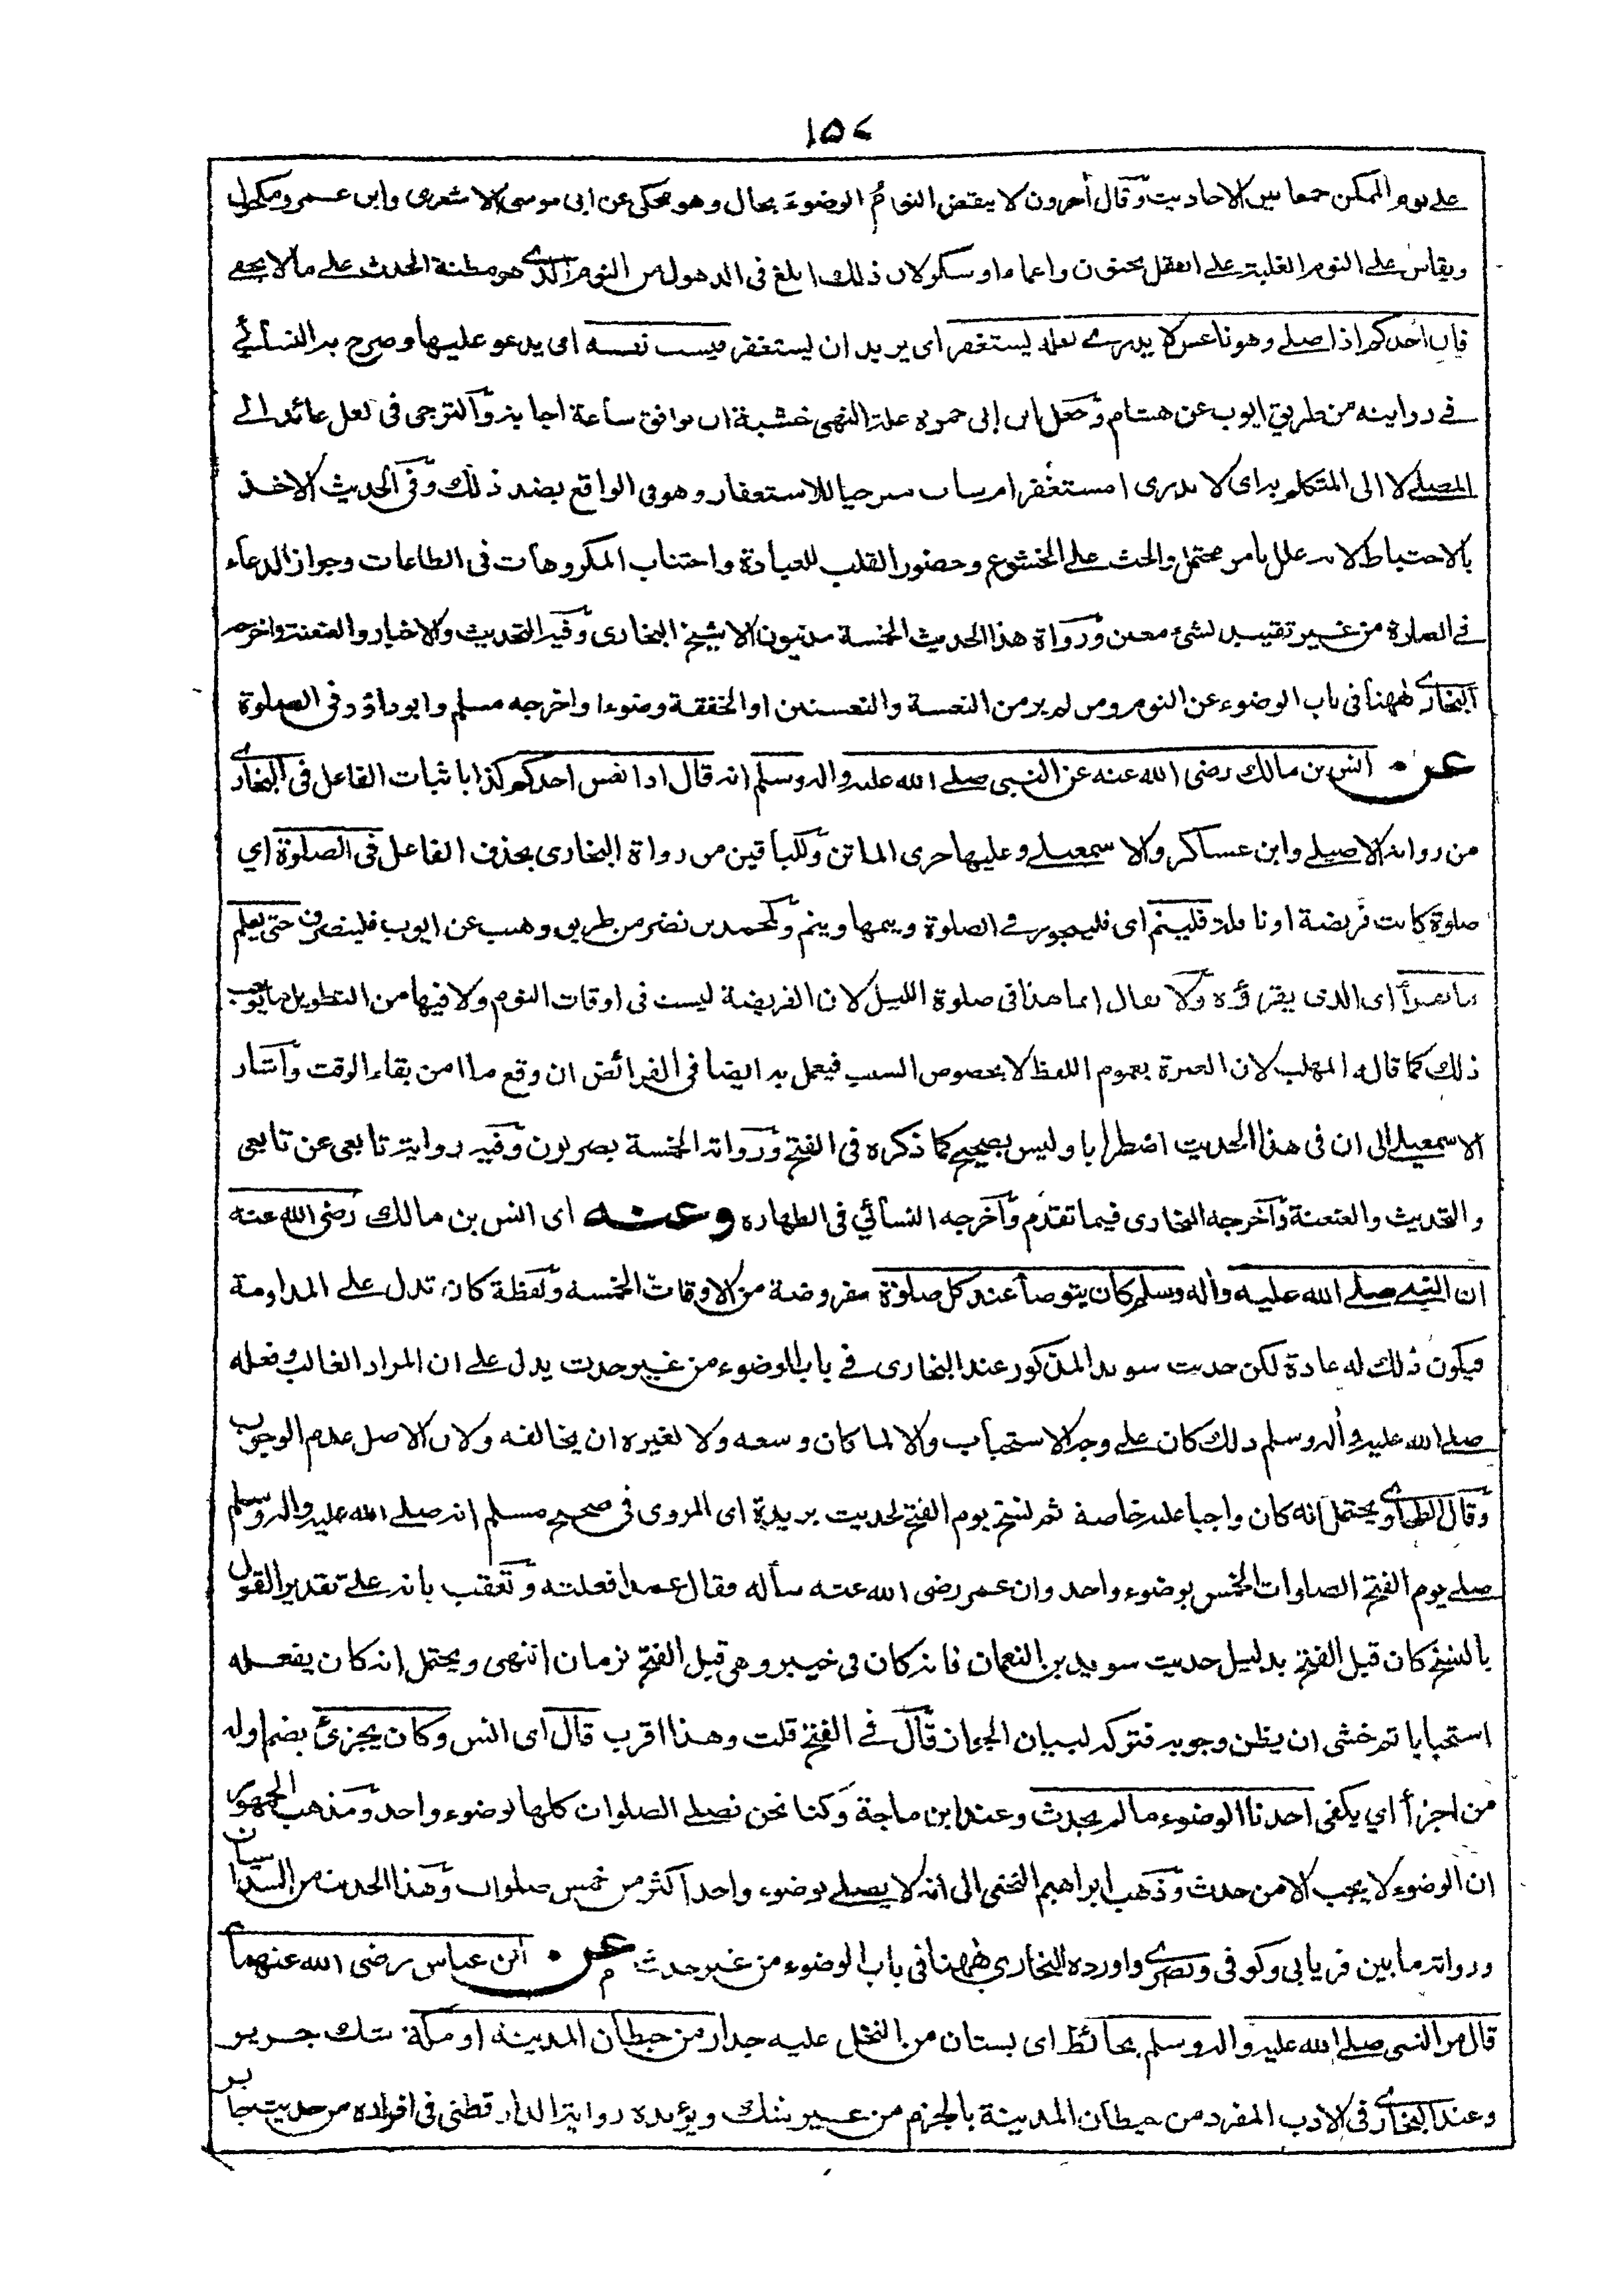 ١٥٧
على نوم الممكن جمعا بين الاحاديث وقال آخرون لا ينقض النوم الوضوء بحال وهو محكى عن ابى موسى الاشعرى وابن عمر ومكحول
ويقاس على النوم الغلبة على العقل بجنون واغماء او سكر لان ذلك ابلغ فى الذهول من النوم الذى هو مظنة الحدث على ما لا يخفى
فان احدكم اذا صلى وهو ناعس لا يدرى لعله يستغفر اى يريد ان يستغفر فيسب نفسه اى يدعو عليها وصرح به النسائى
فى روايته من طريق ايوب عن هشام وجعل ابن ابى جمرة علة النهى خشية ان يوافق ساعة اجابة والترجى فى لعل عائد الى
المصلى لا الى المتكلم به اى لا يدرى امستغفر ام ساب مترجيا للاستغفار وهو فى الواقع بضد ذلك وفى الحديث الاخذ
بالاحتياط لانه علل بامر محتمل والحث على الخشوع وحضور القلب للعبادة واجتناب المكروهات فى الطاعات وجواز الدعاء
فى الصلوة من غير تقييد لشئ معين ورواة هذا الحديث الخمسة مدنيون الا شيخ البخارى وفيه التحديث والاخبار والعنعنة واخرجه
البخارى ههنا فى باب الوضوء عن النوم ومن لم ير من النعسة والنعستين او الخفقة وضوءا واخرجه مسلم وابو داؤد فى الصلوة
عن انس بن مالك رضى الله عنه عن النبى صلى الله عليه واله وسلم انه قال اذا نعس احدكم كذا باثبات الفاعل فى البخارى
من رواية الاصيلى وابن عساكر والاسمعيلى وعليها جرى الماتن وللباقين من رواة البخارى بحذف الفاعل فى الصلوة اي
صلوة كانت فريضة او نافلة فلينم اى فليتجوز فى الصلوة ويتمها وينم ولمحمد بن نصر من طريق وهيب عن ايوب فلينصرف حتى يعلم
ما يقرأ اى الذى يقرؤه ولا يقال انما هذا فى صلوة الليل لان الفريضة ليست فى اوقات النوم ولا فيها من التطويل ما يوجب
ذلك كما قاله المهلب لان العبرة بعموم اللفظ لا بخصوص السبب فيعمل به ايضا فى الفرائض ان وقع ما امن بقاء الوقت واشار
الاسمعيلى الى ان فى هذا الحديث اضطرابا وليس بصحيح كما ذكره فى الفتح ورواته الخمسة بصريون وفيه رواية تابعى عن تابعى
والتحديث والعنعنة واخرجه البخارى فيما تقدم واخرجه النسائي فى الطهارة وعنه اى انس بن مالك رضى الله عنه
ان النبى صلى الله عليه واله وسلم كان يتوضأ عند كل صلوة مفروضة من الاوقات الخمسة ولفظة كان تدل على المداومة
فيكون ذلك له عادة لكن حديث سويد المذكور عند البخارى فى باب الوضوء من غير حدث يدل على ان المراد الغالب وفعله
صلى الله عليه واله وسلم ذلك كان على وجه الاستحباب والا لما كان وسعه ولا لغيره ان يخالفه ولان الاصل عدم الوجوب
وقال الطحاوى يحتمل انه كان واجبا عليه خاصة ثم نسخ يوم الفتح لحديث بريدة اى المروى فى صحيح مسلم انه صلى الله عليه واله وسلم
صلى يوم الفتح الصلوات الخمس بوضوء واحد وان عمر رضى الله عنه سأله فقال عمدا فعلته وتعقب بانه على تقدير القول
بالنسخ كان قبل الفتح بدليل حديث سويد بن النعمان فانه كان فى خيبر وهى قبل الفتح بزمان انتهى ويحتمل انه كان يفعله
استحبابا ثم خشى ان يظن وجوبه فتركه لبيان الجواز قال فى الفتح قلت وهذا اقرب قال اى انس وكان يجزئ بضم اوله
من اجزأ اي يكفى احدنا الوضوء ما لم يحدث وعند ابن ماجة وكنا نحن نصلى الصلوات كلها بوضوء واحد ومذهب الجمهور
ان الوضوء لا يجب الا من حدث وذهب ابراهيم النخعى الى انه لا يصلى بوضوء واحد اكثر من خمس صلوات وهذا الحديث من السداسيات
ورواته ما بين فريابى وكوفى وبصرى واورده البخارى ههنا فى باب الوضوء من غير حدث م عن ابن عباس رضى الله عنهما
قال مر النبى صلى الله عليه واله وسلم بحائط اى بستان من النخل عليه جدار من حيطان المدينة او مكة شك جرير
وعند البخارى فى الادب المفرد من حيطان المدينة بالجزم من غير شك ويؤيده رواية الدارقطنى فى افراده من حديث جابر